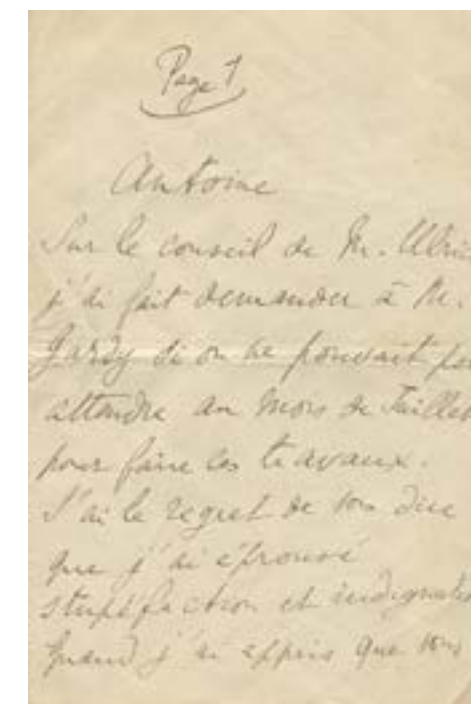 Page 1
Antoine
Sur le conseil de M. Ulric
j'ai fait demander à M.
Jardy si on ne pouvait pas
attendre au mois de Juillet
pour faire les travaux.
J'ai le regret de vous dire
que j'ai éprouvé
stupéfaction et indignation
quand j'ai appris que vous